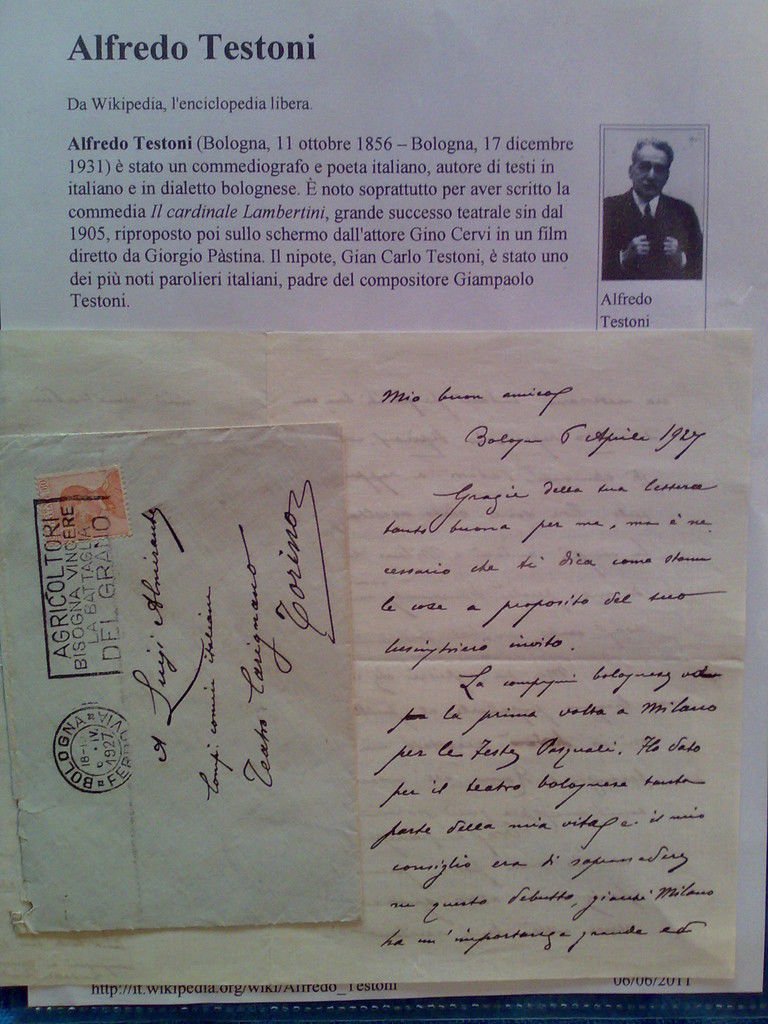 Alfredo Testoni
Da Wikipedia, l'enciclopedia libera.
Alfredo Testoni (Bologna, 11 ottobre 1856 – Bologna, 17 dicembre
1931) è stato un commediografo e poeta italiano, autore di testi in
italiano e in dialetto bolognese. È noto soprattutto per aver scritto la
commedia Il cardinale Lambertini, grande successo teatrale sin dal
1905, riproposto poi sullo schermo dall'attore Gino Cervi in un film
diretto da Giorgio Pàstina. Il nipote, Gian Carlo Testoni, è stato uno
dei più noti parolieri italiani, padre del compositore Giampaolo
Testoni.
Alfredo
Testoni
AGRICOLTORI
BISOGNA VINCERE
LA BATTAGLIA
DEL GRANO
BOLOGNA
FERROVIA
18-
6 IV
1927
A Luigi Almirante
Comp. comica italiana
Teatro Carignano
Torino
Mio buon amico
Bologna 6 Aprile 1927
Grazie della tua lettera
tanto buona per me, ma è ne
cessario che ti dica come stanno
le cose a proposito del tuo
lusinghiero invito.
La compagnia bolognese
la prima volta a Milano
per le Feste Pasquali. Ho dato
per il teatro bolognese tanta
parte della mia vita e il mio
consiglio era di soprassedere
su questo debutto, giacché Milano
ha un'importanza grande ed
http://it.wikipedia.org/wiki/Alfredo_Testoni
06/06/2011